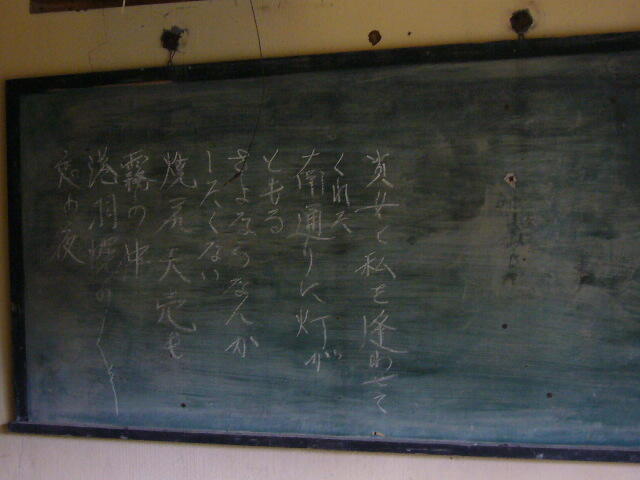 貴女と私を逢わせて
くれた
南通りに灯が
ともる
さよならなんか
したくない
焼尻天売も
霧の中
港羽幌の
恋の夜